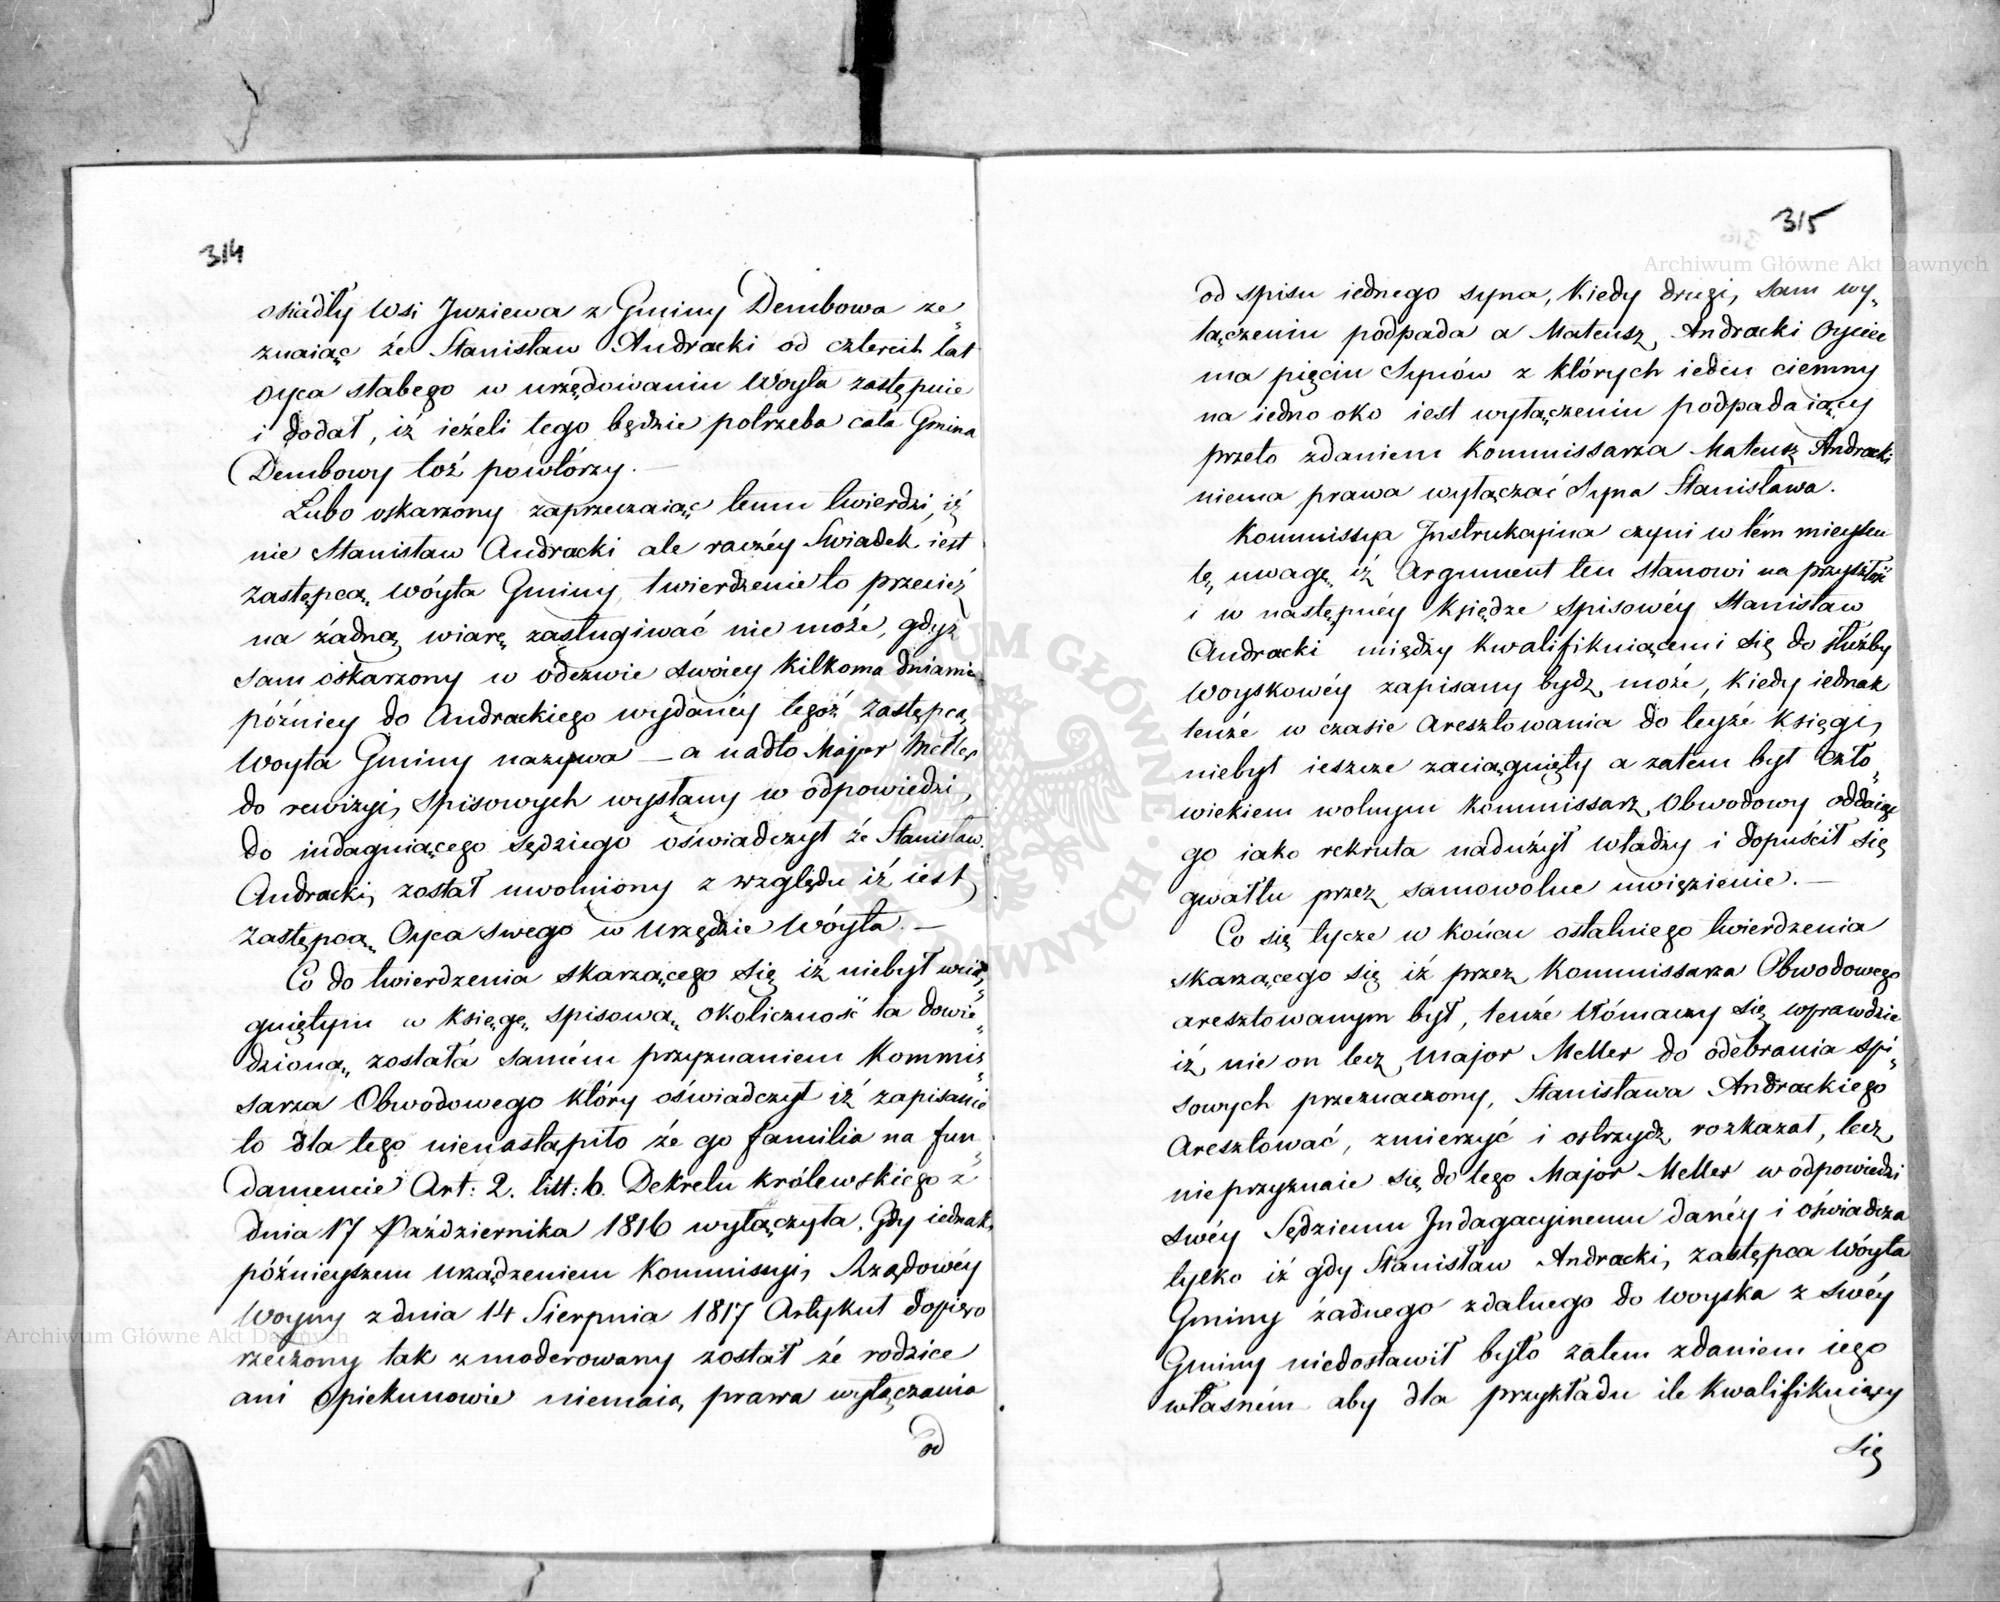 314
osiadły wsi Juziewa z Gminy Dembowa ze„
znaiąc że Stanisław Andracki od czterech lat
oyca słabego w urzędowaniu Woyta zastępuie
i dodał, iż ieżeli tego będzie potrzeba cała Gmina
Dembowy toż powtórzy. —
Lubo oskarzony zaprzeczaiąc temu twierdzi, iż
nie Stanisław Andracki ale raczéy Swiadek iest
zastępcą Wóyta Gminy, twierdzenie to przecież
na żadną wiarę zasługiwać nie może, gdyż
sam oskarzony w odezwie swoiey kilkoma dniami
późniey do Andrackiego wydanéy tegóż zastępcą
Woyta Gminy nazywa — a nadto Major Meller
do rewizyi spisowych wysłany w odpowiedzi
do indaguiącego sędziego oświadczył że Stanisław
Andracki został uwolniony z względu iż iest
zastępcą Oyca swego w urzędzie Wóyta. —
Co do twierdzenia skarzącego się iż niebył wcią„
gniętym w księgę spisową okoliczność ta dowie„
dzioną została samém przyznaniem Kommis„
sarza Obwodowego który oświadczył iż zapisanie
to dla tego nienastąpiło że go familia na fun„
damencie Art: 2. litt: b. Dekretu królewskiego z
dnia 17 Października 1816 wyłączyła. Gdy iednak
późnieyszem urządzeniem Kommissyi Rządowéy
Woyny z dnia 14 Sierpnia 1817 Artykuł dopiero
rzeczony tak zmoderowany został że rodzice
ani opiekunowie niemaią prawa wyłączania
od
315
od spisu iednego syna, kiedy drugi sam wy„
łączeniu podpada a Mateusz Andracki Oyciec
ma pięciu Synów z których ieden ciemny
na iedno oko iest wyłączeniu podpadaiący
przeto zdaniem Kommissarza Mateusz Andracki
niema prawa wyłączać Syna Stanisława.
Kommissya Instrukcyina czyni w tém mieyscu
tę uwagę iż Argument ten stanowi na przyszłość
i w następnéy księdze spisowéy Stanisław
Andracki między kwalifikuiącemi się do służby
woyskowéy zapisany bydz może, kiedy iednak
tenże w czasie aresztowania do teyże księgi
niebył ieszcze zaciągnięty a zatem był czło„
wiekiem wolnym Kommissarz Obwodowy oddaiąc
go iako rekruta nadużył władzy i dopuścił się
gwałtu przez samowolne uwięzienie. —
Co się tycze w końcu ostatniego twierdzenia
skarzącego się iż przez Kommissarza Obwodowego
aresztowanym był, tenże tłómaczy się wprawdzie
iż nie on lecz Major Meller do odebrania spi„
sowych przeznaczony, Stanisława Andrackiego
Aresztować, zmierzyć i ostrzydz rozkazał, lecz
nieprzyznaie się do tego Major Meller w odpowiedzi
swéy Sędziemu Indagacyinemu danéy i oświadcza
tylko iż gdy Stanisław Andracki zastępca Wóyta
Gminy żadnego zdatnego do woyska z swéy
Gminy niedostawił było zatem zdaniem iego
własném aby dla przykładu ile kwalifikuiący
się
Archiwum Główne Akt Dawnych
Archiwum Główne Akt Dawnych